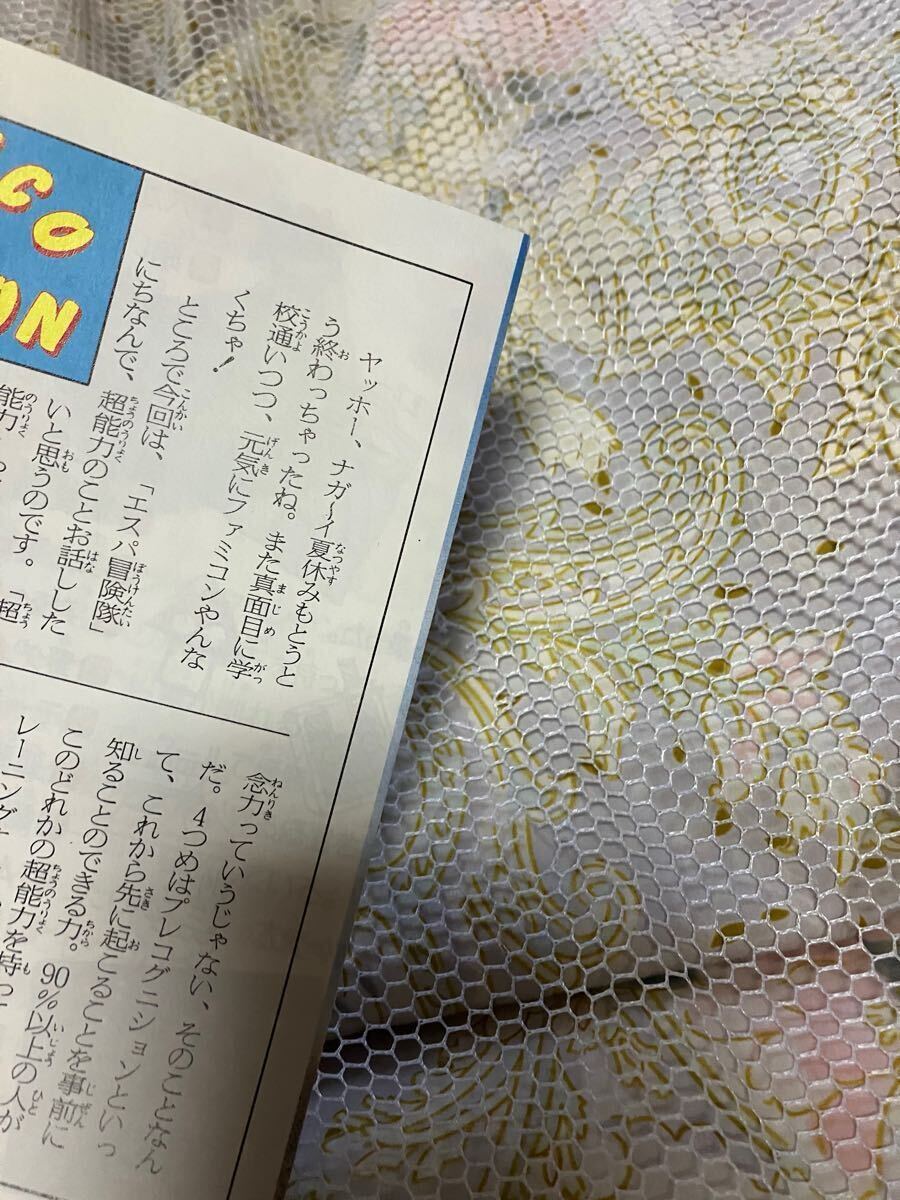 CO
ON
ヤッホー、ナガ〜イ夏休みもとうと
う終わっちゃったね。また真面目に学
校通いつつ、元気にファミコンやんな
くちゃ!
ところで今回は、「エスパ冒険隊」
にちなんで、超能力のことお話しした
いと思うのです。「超
能力
念力っていうじゃない、そのことなん
だ。4つめはプレコグニションといっ
て、これから先に起こることを事前に
知ることのできる力。90%以上の人が
このどれかの超能力を持って
レーニング